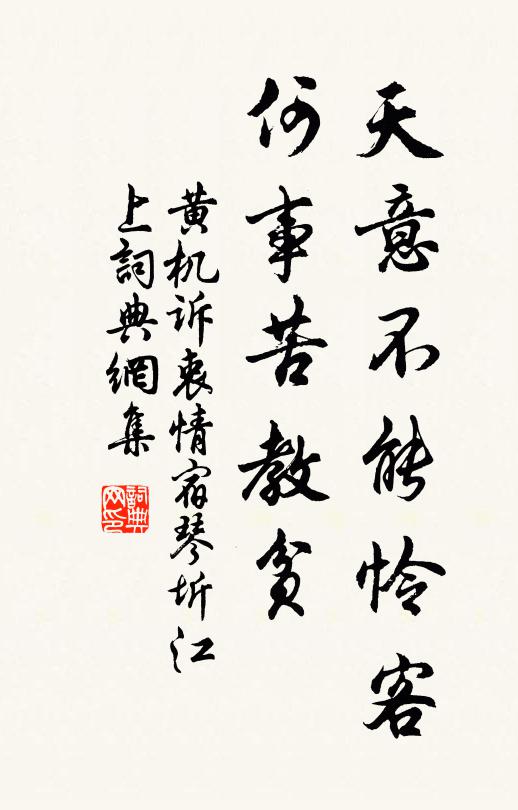 天意不能怜客
何事苦教贫
黄机诉衷情宿琴圻江
上词典網集
詞典网印